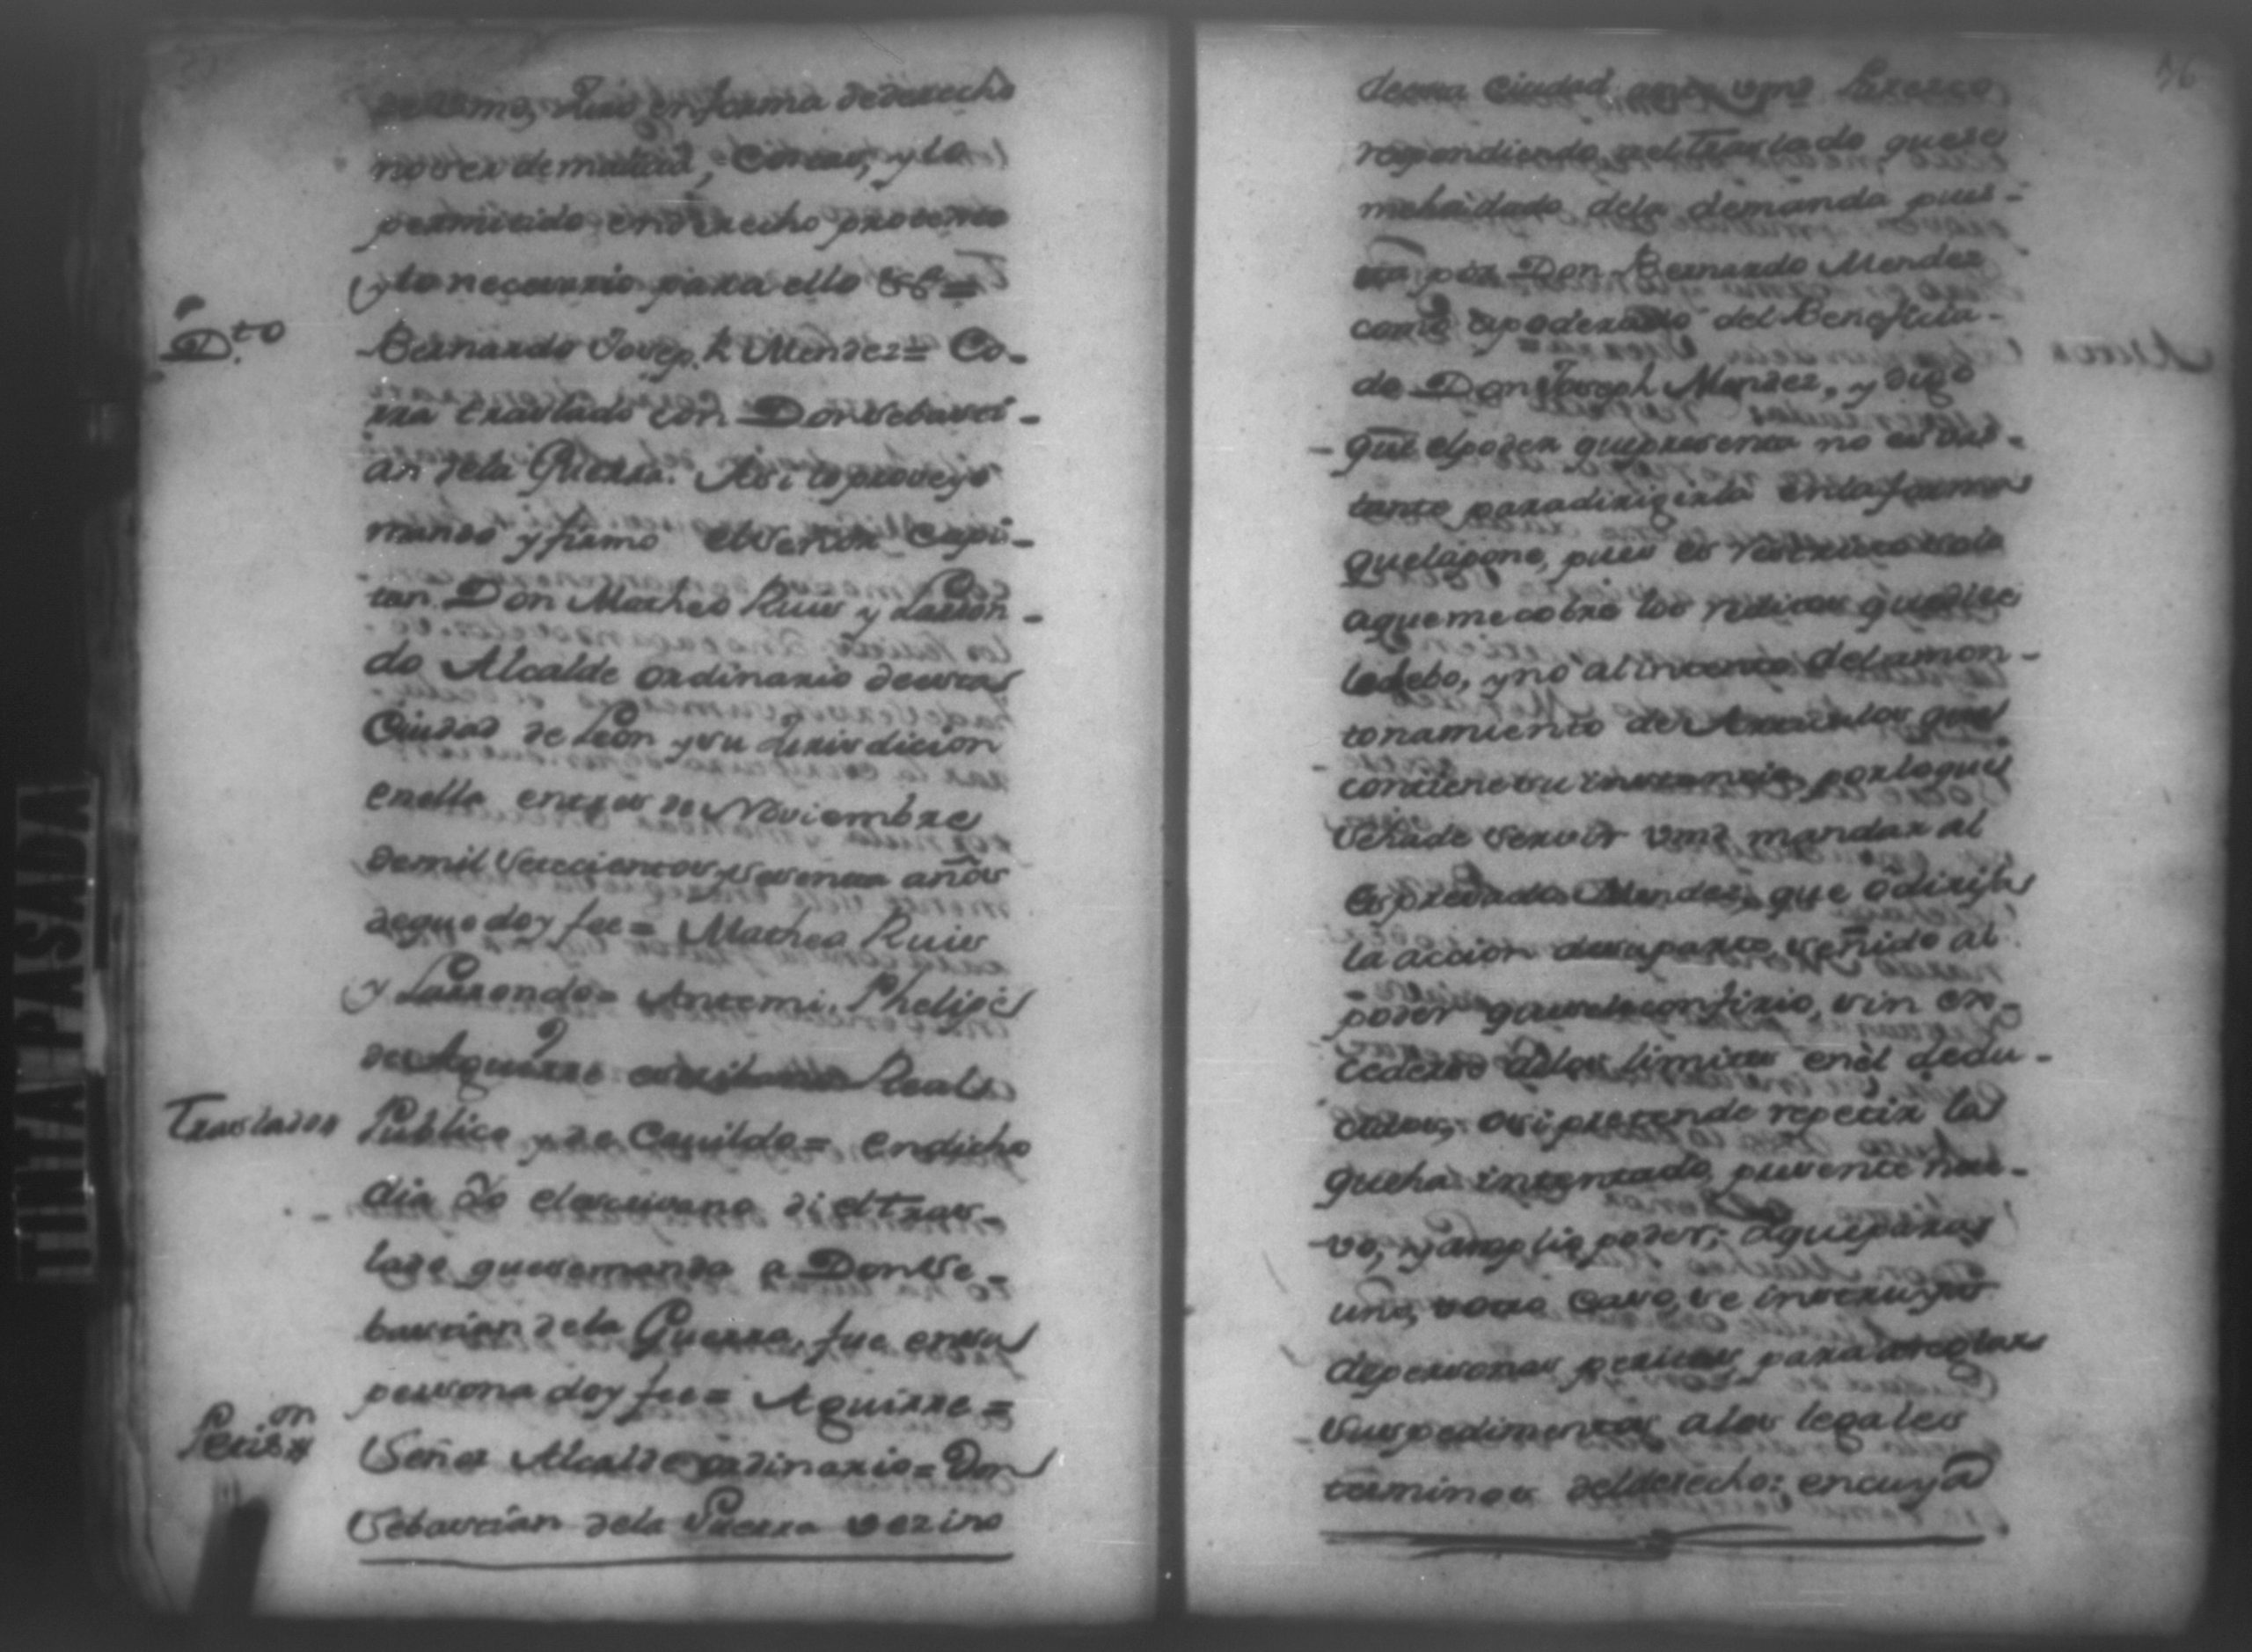 Juro en forma de derecho
no ser de malicia, Costas, y lo
permitido en derecho protexto
y lo necessario para ello &ª =
Dto
Bernardo Joseph Mendez = Co-
rra traslado con Don Sebasti-
an dela Guerra. Asi lo proveyó
mandó y firmó el Señor Capi-
tan Don Matheo Ruis y Larron-
do Alcalde ordinario de esta
Ciudad de Leon y su jurisdicion
en ella en tres de Noviembre
de mil setecientos y sesenta años
de que doy fee = Matheo Ruis
y Larrondo = Antemi. Phelipe
de Aquirre escribano Real
Traslado
Publico y de Cavildo = en dicho
dia Yo el escrivano di el tras-
lado que se manda a Don Se-
bastian dela Guerra, fue en su
persona doy fee = Aquirre =
Petizon
Señor Alcalde ordinario = Don
Sebastian dela Guerra vezino
76
de esta Ciudad ante vmd Parezco
respondiendo al traslado que se
me ha dado dela demanda pues-
ta por Don Bernardo Mendez
como apoderado del Beneficia-
do Don Joseph Mendez, y digo
que el poder que presenta no es bas-
tante para dirigirla en la forma
que la pone, pues es restricto solo
a que me cobre los reditos que dize
le debo, y no al intento del amon-
tonamiento de Articulos que
contiene su instancia, por lo que
se ha de servir vmd mandar al
expresado Mendez, que ó dirija
la accion de su parte, señido al
poder que se le confirio, sin ex-
cederse a los limites en èl dedu-
cidos, o si pretende repetir la
que ha intentado, presente nue-
vo, y amplio poder; a que para
uno, u otro caso, se instruya
de personas peritas para arreglar
sus pedimentos a los legales
terminos del derecho: en cuya